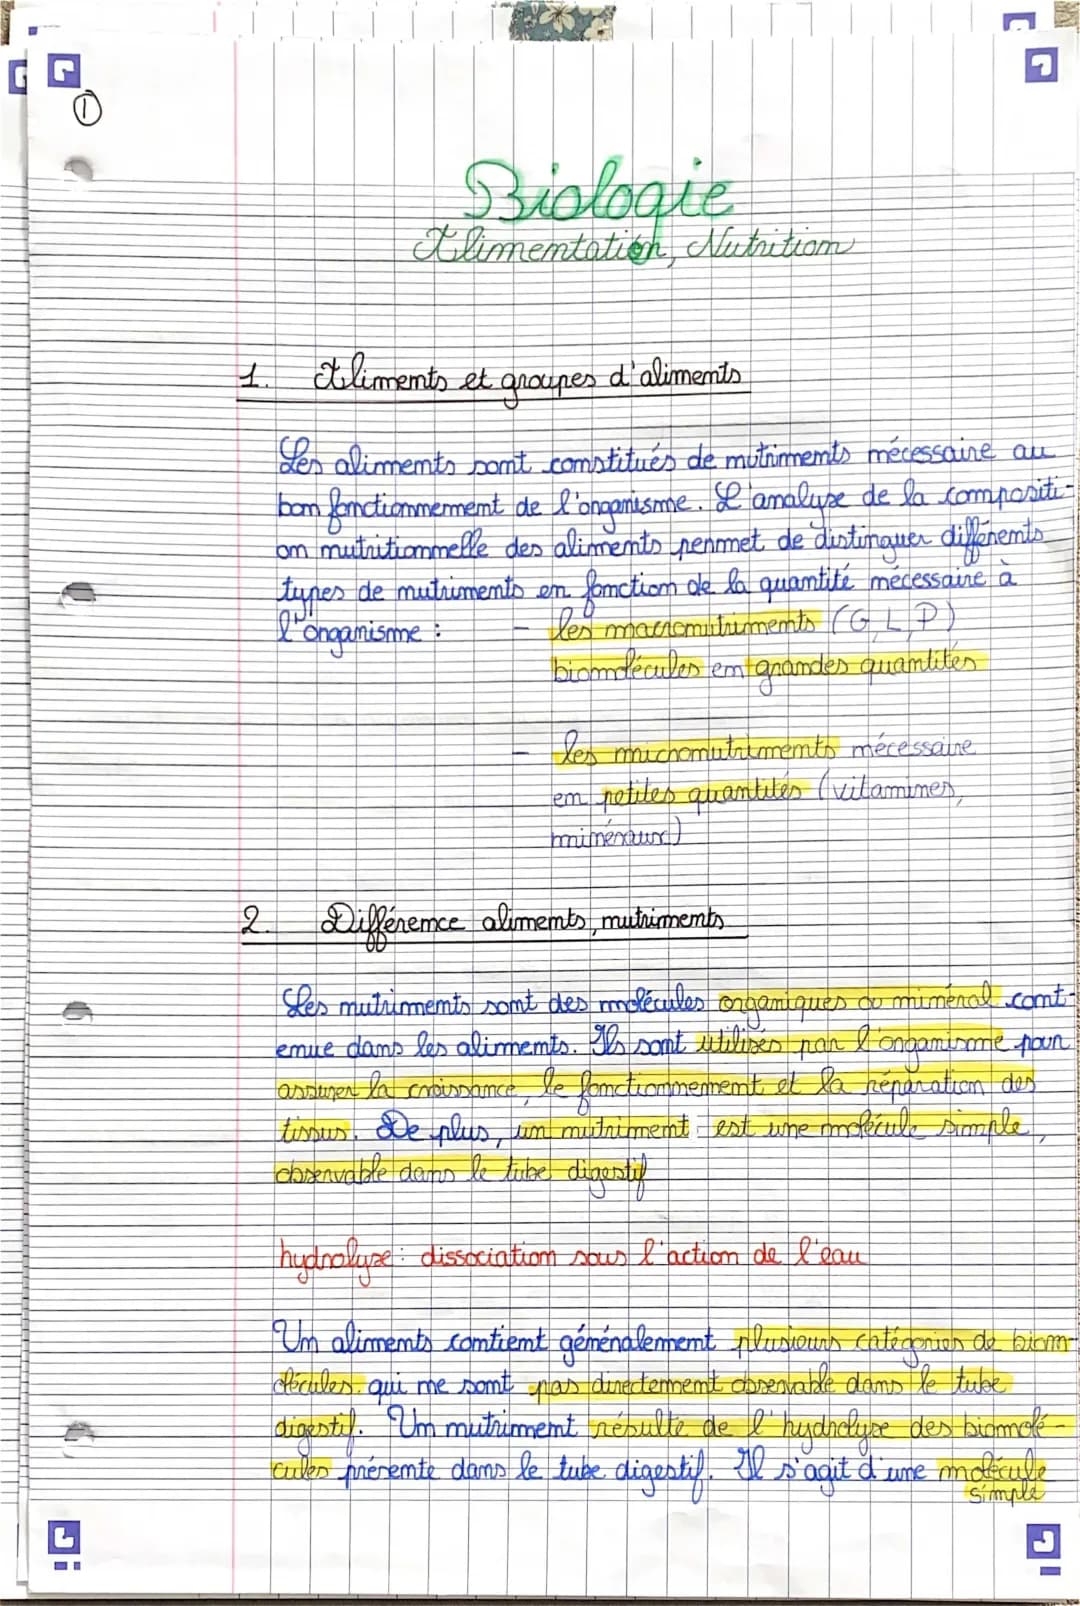 ①
Biologie
Alimentation, Nutrition
1. Aliments et groupes d'aliments
Les aliments sont constitués de nutriments nécessaire au
bon fonctionnement de l'organisme. L'analyse de la compositi-
on nutritionnelle des aliments permet de distinguer différents
types de nutriments en fonction de la quantité nécessaire à
l'organisme :
- les macronutriments (G, L, P)
biomolécules en grandes quantités
- les micronutriments nécessaire
en petites quantités (vitamines,
minéraux)
2. Différence aliments, nutriments
Les nutriments sont des molécules organiques ou minéral cont-
enue dans les aliments. Ils sont utilisés par l'organisme pour
assurer la croissance, le fonctionnement et la réparation des
tissus. De plus, un nutriment est une molécule simple,
observable dans le tube digestif
hydrolyse : dissociation sous l'action de l'eau
Un aliments contient généralement plusieurs catégories de biom-
olécules qui ne sont pas directement observable dans le tube
digestif. Un nutriment résulte de l'hydrolyse des biomolé-
cules présente dans le tube digestif. Il s'agit d'une molécule
simple